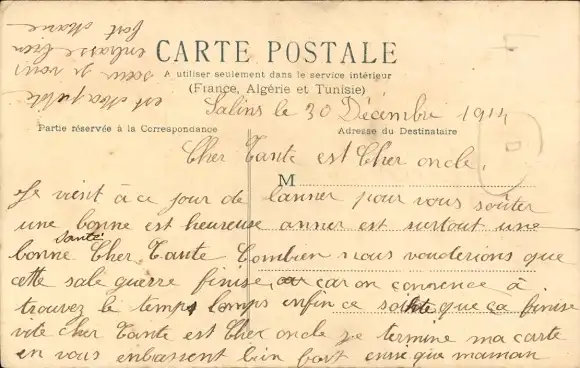 CARTE POSTALE
A utiliser seulement dans le service intérieur
(France, Algérie et Tunisie)
Salins le 30 Décembre 1914
Partie réservée à la Correspondance
Adresse du Destinataire
Cher Tante est Cher oncle.
M
Je vient à ce jour de lanner pour vous soúter
une bonne est heureuse anner est surtout une
santé
bonne Cher Tante Combien nous vouderions que
cette sale guerre finise, car on conmence à
trouvez le temps lomps enfin ce sohte que ça finise
vite Cher Tante est Cher oncle je termine ma carte
en vous enbassent bien fort ensie que maman
est
sœur je vous
enbrasse bien
fort Marie